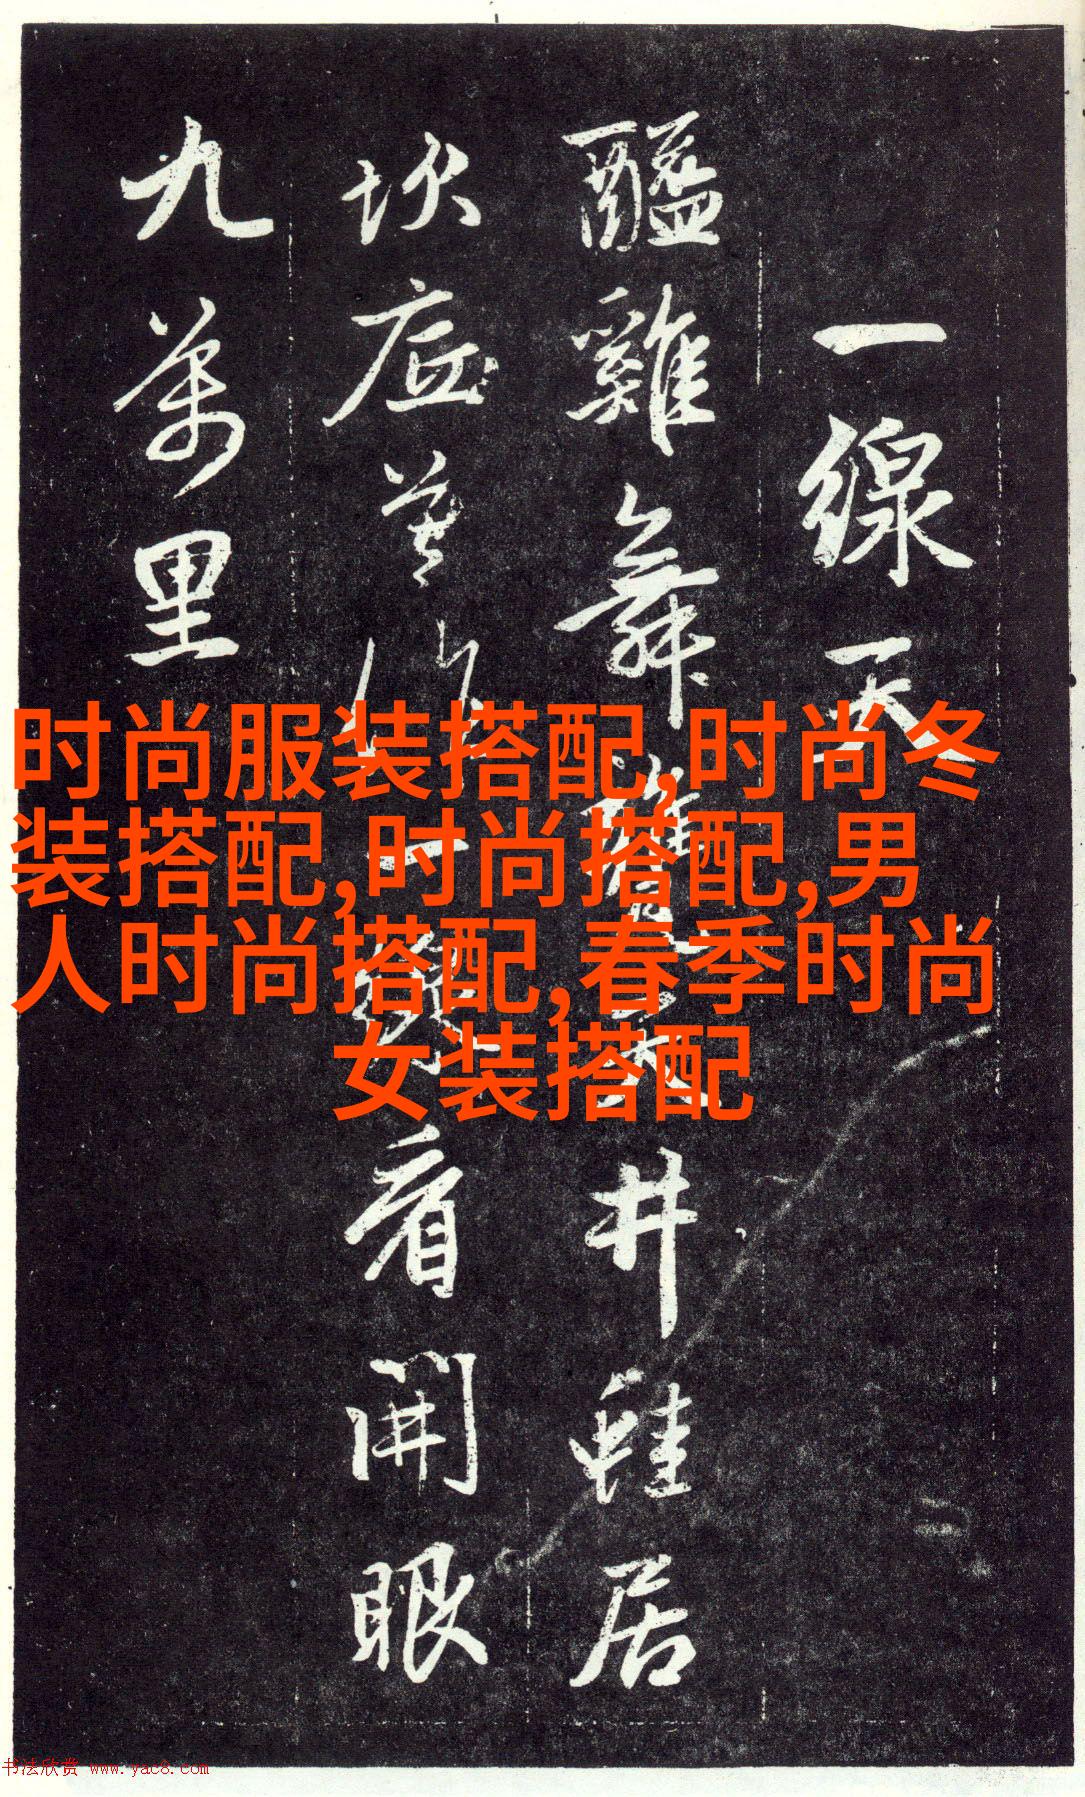 时尚服装搭配,时尚冬
装搭配,时尚搭配,男
人时尚搭配,春季时尚
女装搭配
一線天
醯雞舞甕天井蛙居
坎底莫作一看開眼
九萬里
书法欣赏 www.yac8.com